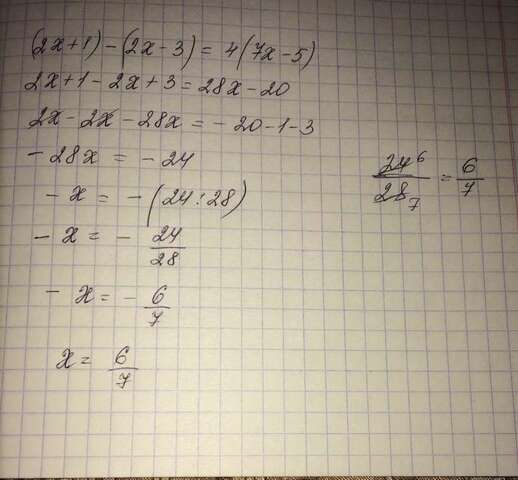 (2x+1)-(2x-3)=4(7x-5)
2x+1-2x+3=28x-20
2x-2x-28x=-20-1-3
-28x=-24
-x=-(24:28)
-x=-24/28
-x=-6/7
x=6/7
24⁶/28₇=6/7